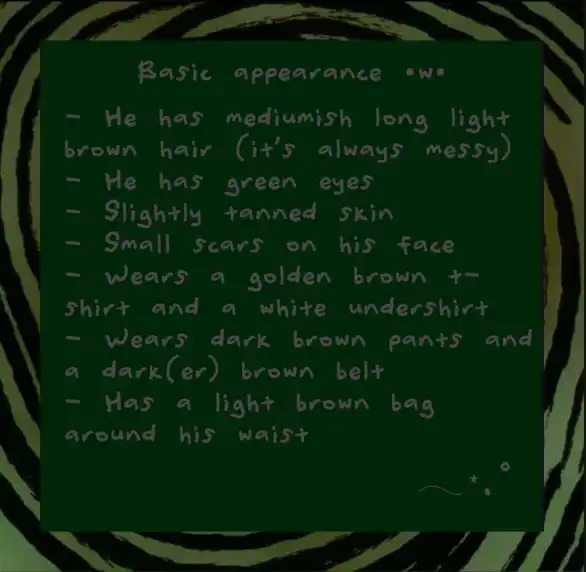 Basic appearance •w•
- He has mediumish long light
brown hair (it's always messy)
- He has green eyes
- Slightly tanned skin
- Small scars on his face
- Wears a golden brown t-
shirt and a white undershirt
- Wears dark brown pants and
a dark(er) brown belt
- Has a light brown bag
around his waist